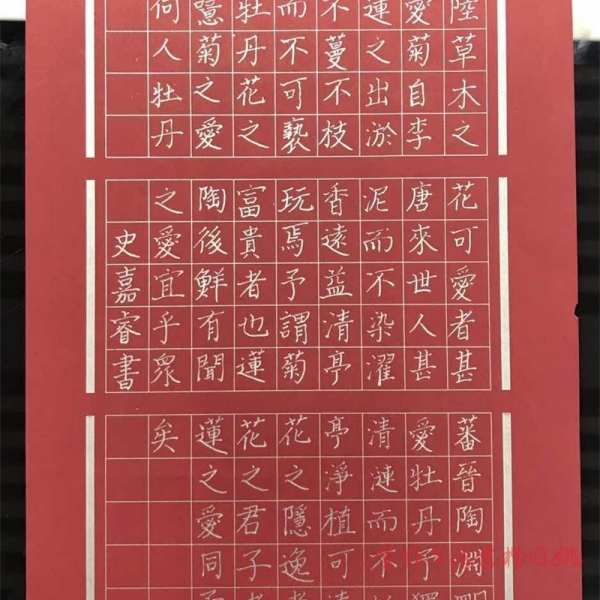 陸草木之花可愛者甚蕃晉陶淵明
愛菊自李唐來世人甚愛牡丹予獨
蓮之出淤泥而不染濯清漣而不
不蔓不枝香遠益清亭亭淨植可遠
而不可褻玩焉予謂菊花之隱逸者
牡丹花之富貴者也蓮花之君子者
噫菊之愛陶後鮮有聞蓮之愛同予
何人牡丹之愛宜乎眾矣
史嘉睿書